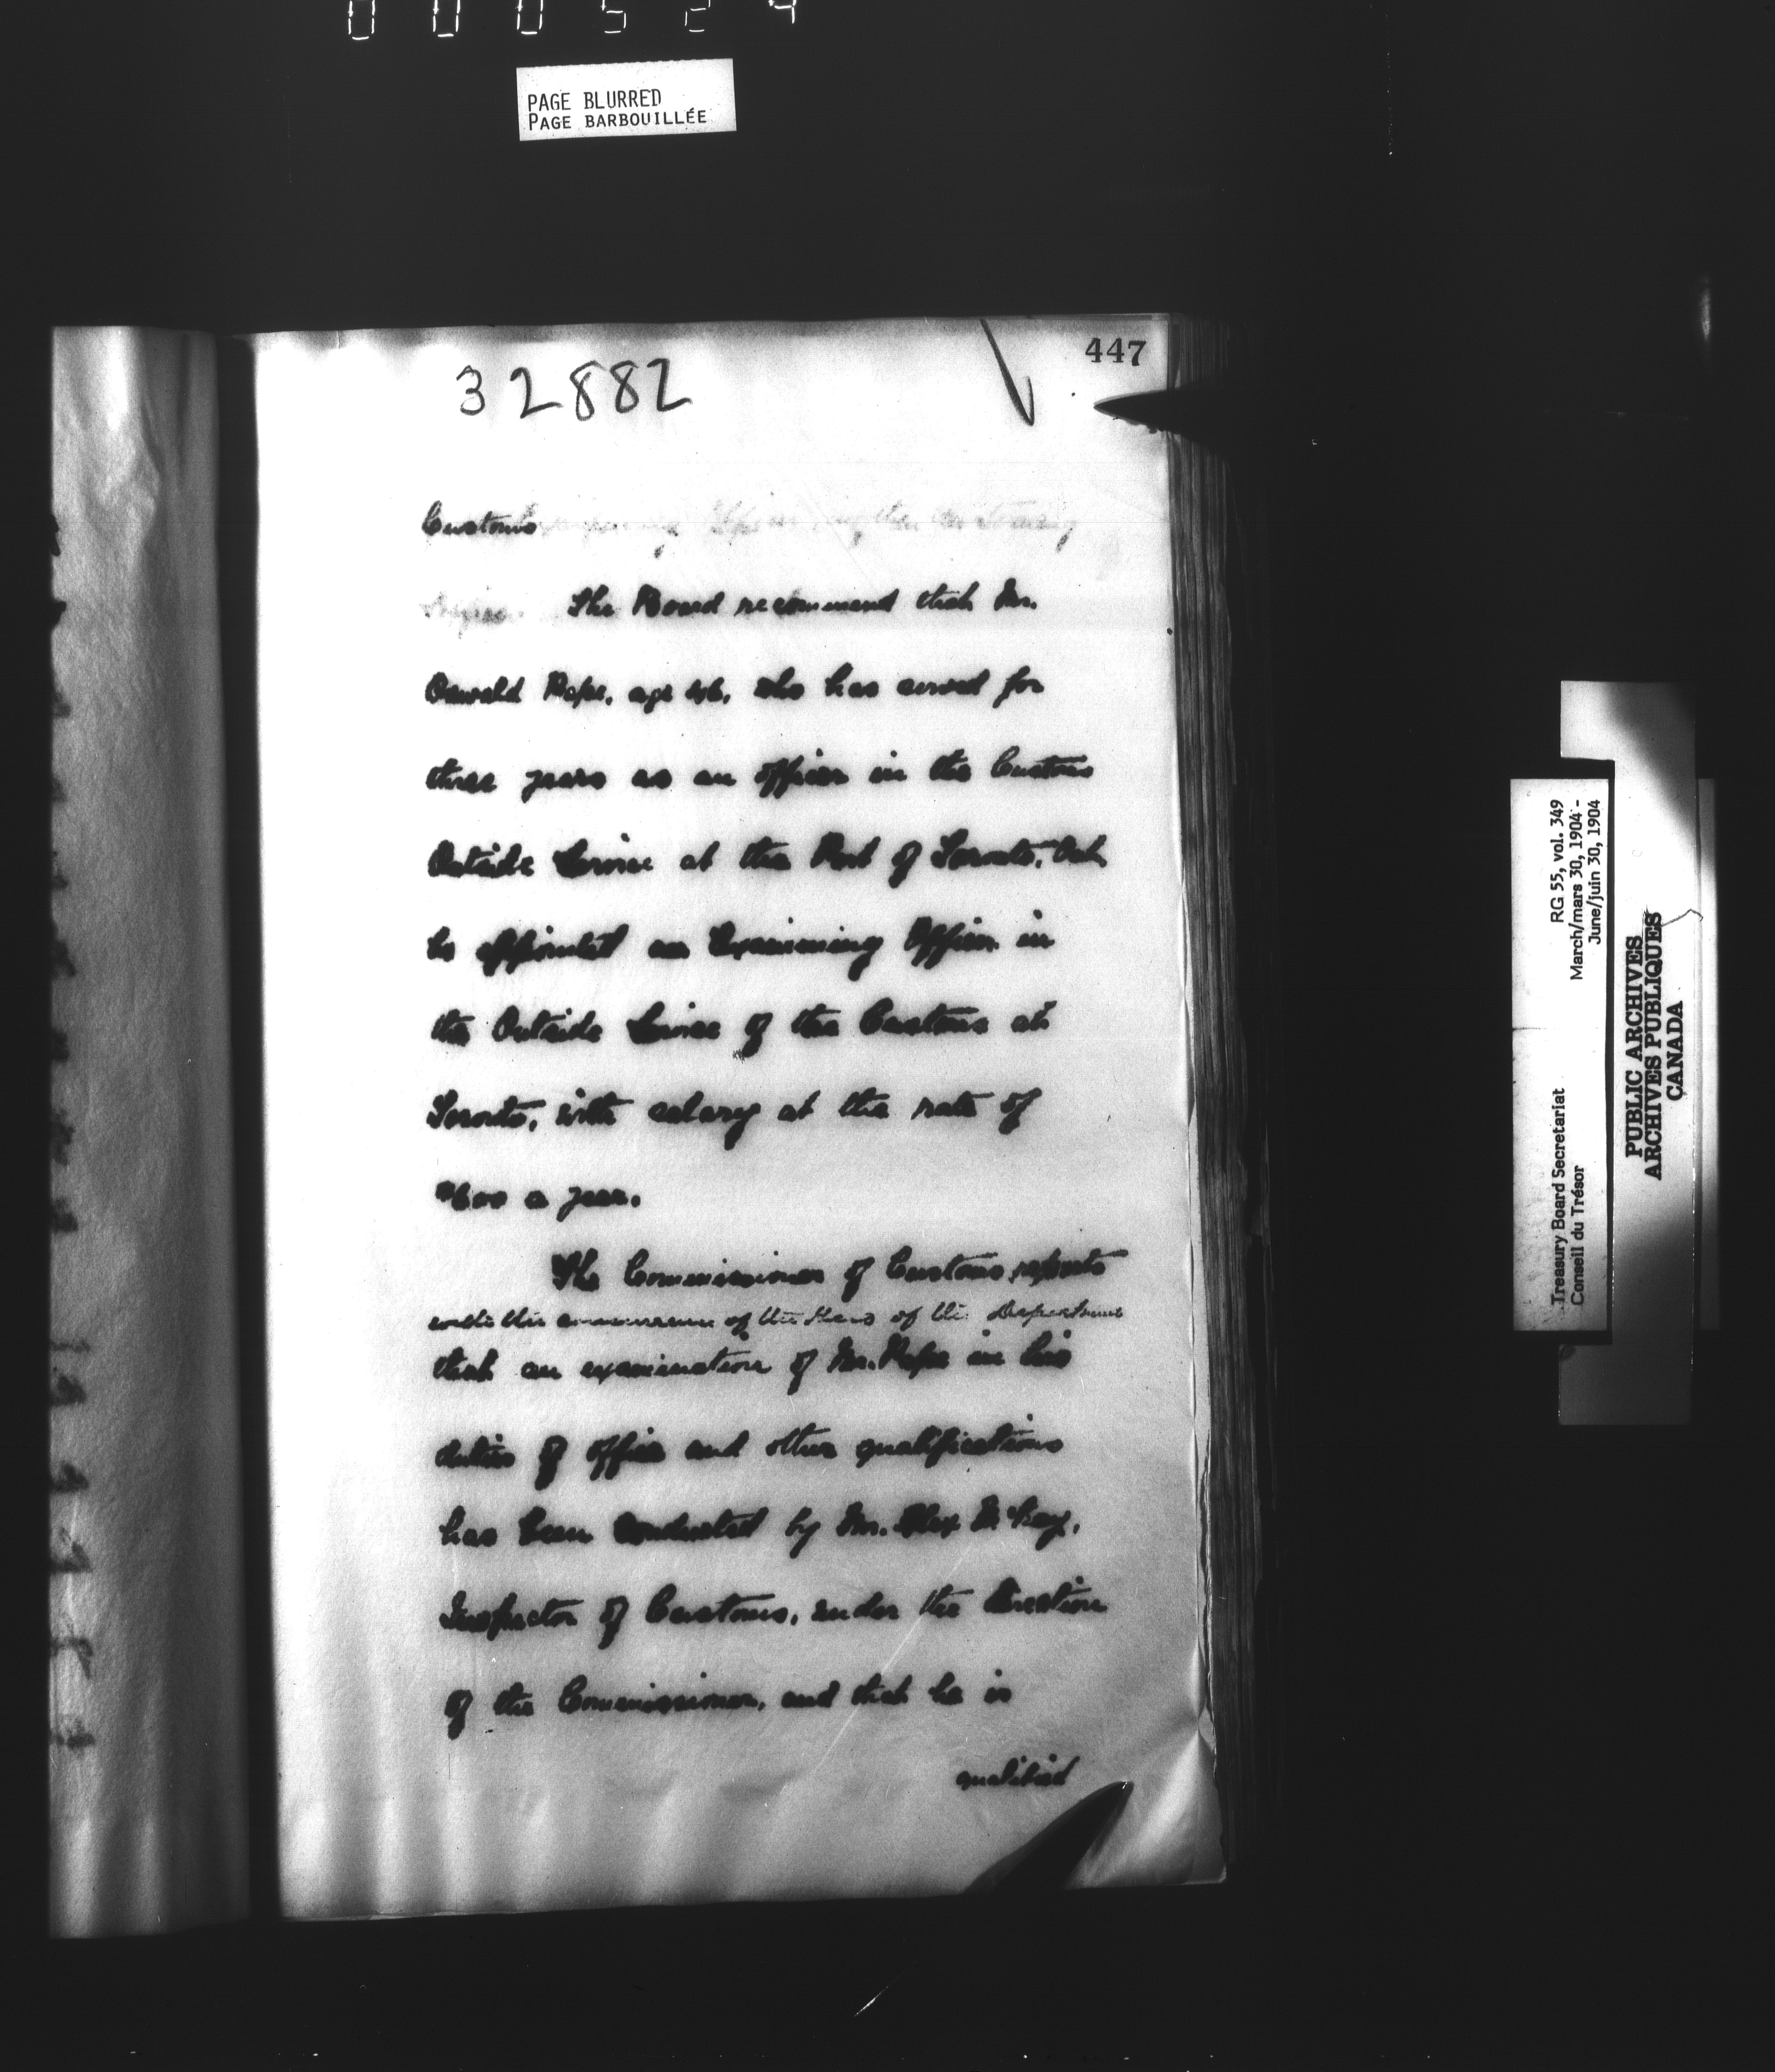 000524
PAGE BLURRED
PAGE BARBOUILLÉE
447
32882
Customs
The Board recommend that Mr.
Oswald Pape, age 46, who has served for
three years as an officer in the Customs
Outside Service at the Port of Toronto, Ont.
be appointed an Examining Officer in
the Outside Service of the Customs at
Toronto, with salary at the rate of
$600 a year.
The Commissioner of Customs reports
with the concurrence of the Head of the Department
that an examination of Mr. Pape in his
duties of office and other qualifications
has been conducted by Mr. Alex McKay,
Inspector of Customs, under the direction
of the Commissioner, and that he is
qualified
Treasury Board Secretariat
Conseil du Trésor
RG 55, vol. 349
March/mars 30, 1904 -
June/juin 30, 1904
PUBLIC ARCHIVES
ARCHIVES PUBLIQUES
CANADA